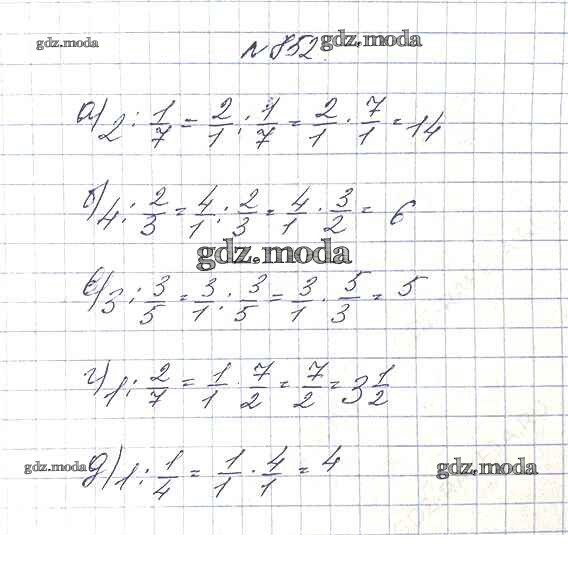 gdz.moda
№ 852 gdz.moda
а) 2 : 1/7 = 2/1 : 1/7 = 2/1 · 7/1 = 14
б) 4 : 2/3 = 4/1 : 2/3 = 4/1 · 3/2 = 6
gdz.moda
в) 3 : 3/5 = 3/1 : 3/5 = 3/1 · 5/3 = 5
г) 1 : 2/7 = 1/1 · 7/2 = 7/2 = 3 1/2
gdz.moda д) 1 : 1/4 = 1/1 · 4/1 = 4 gdz.moda